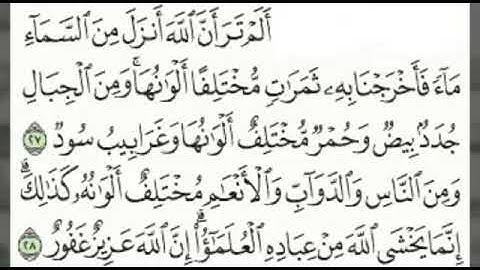 أَلَمْ تَرَ أَنَّ ٱللَّهَ أَنزَلَ مِنَ ٱلسَّمَآءِ
مَآءً فَأَخْرَجْنَا بِهِۦ ثَمَرَٰتٍ مُّخْتَلِفًا أَلْوَٰنُهَا ۚ وَمِنَ ٱلْجِبَالِ
جُدَدٌۢ بِيضٌ وَحُمْرٌ مُّخْتَلِفٌ أَلْوَٰنُهَا وَغَرَابِيبُ سُودٌ ٢٧
وَمِنَ ٱلنَّاسِ وَٱلدَّوَآبِّ وَٱلْأَنْعَٰمِ مُخْتَلِفٌ أَلْوَٰنُهُۥ كَذَٰلِكَ ۗ
إِنَّمَا يَخْشَى ٱللَّهَ مِنْ عِبَادِهِ ٱلْعُلَمَٰٓؤُا۟ ۗ إِنَّ ٱللَّهَ عَزِيزٌ غَفُورٌ ٢٨